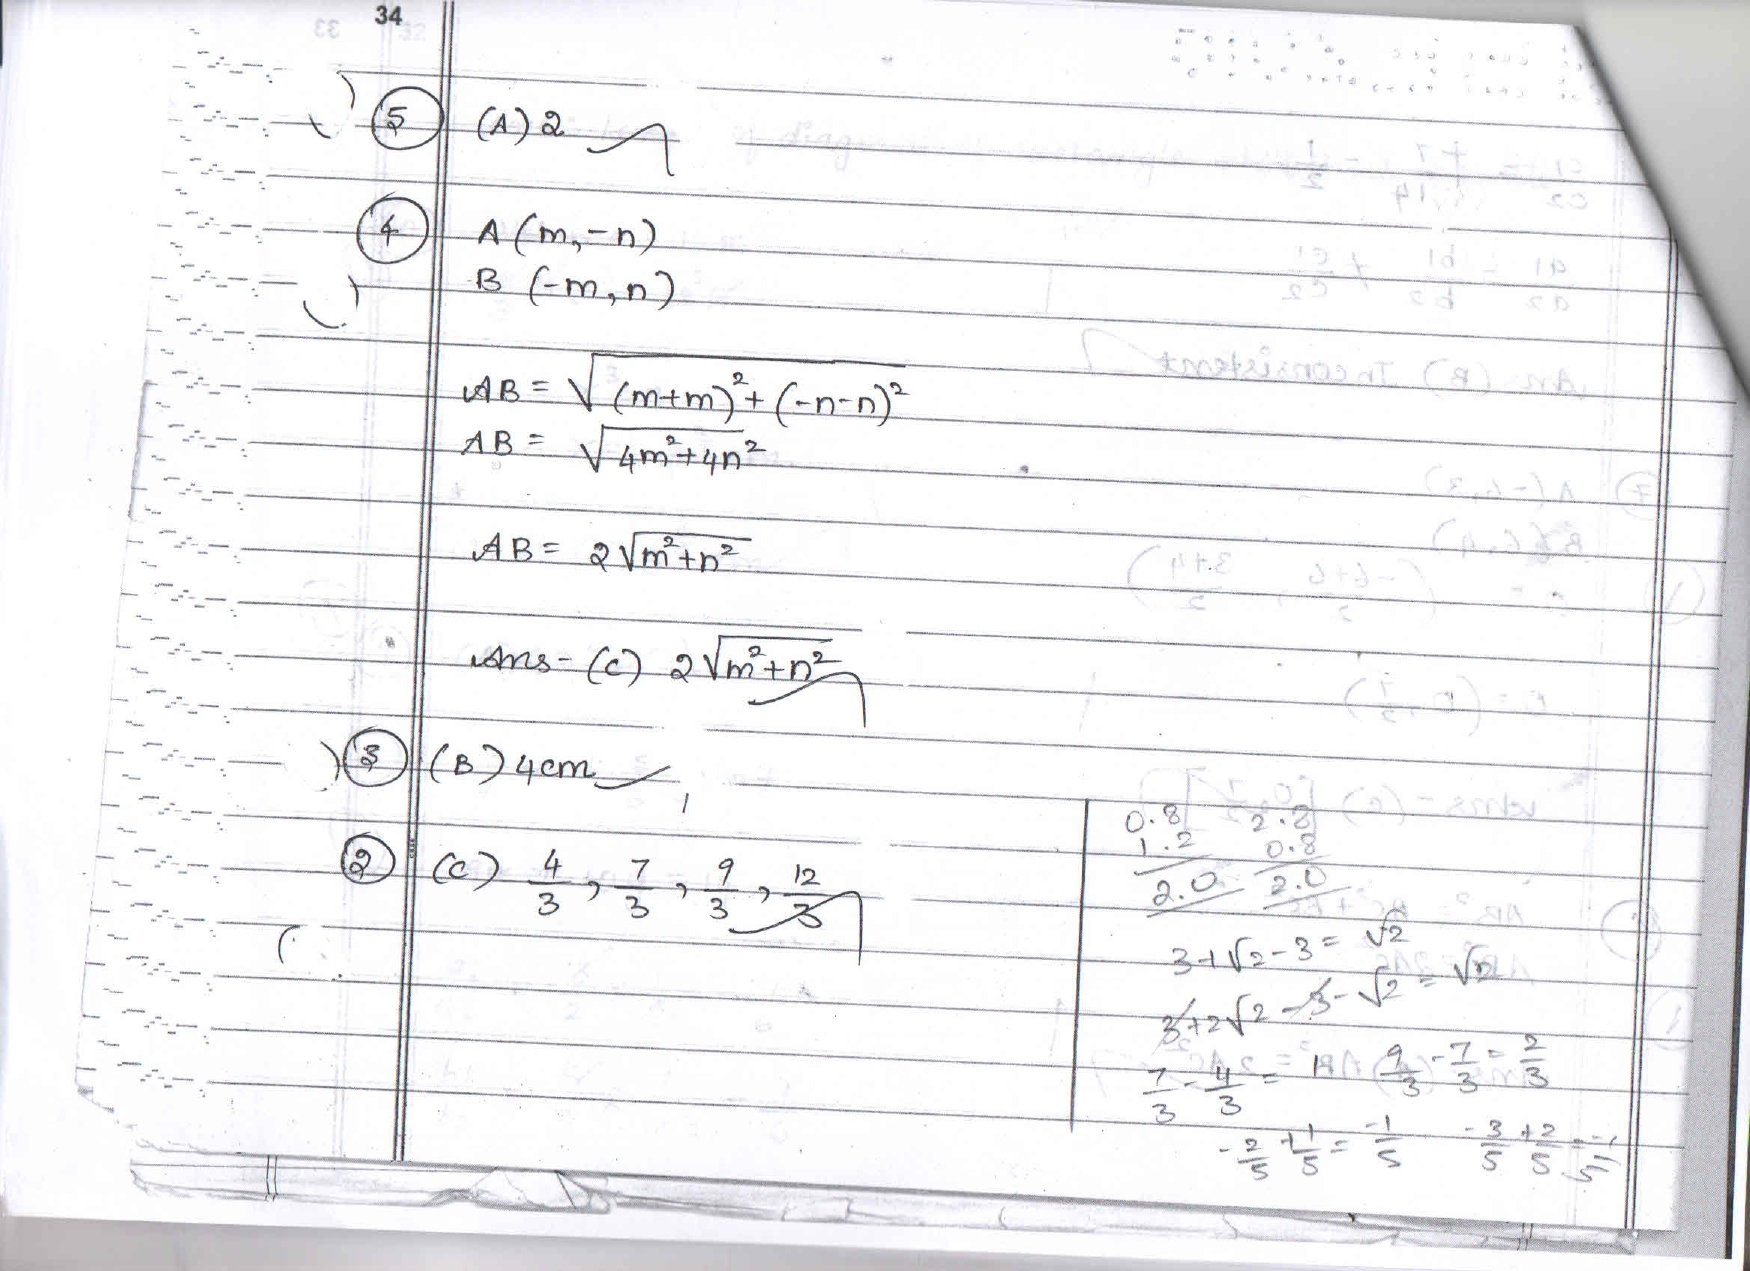 34
5 (A) 2
4 A (m, -n)
B (-m, n)
AB = √(m+m)² + (-n-n)²
AB = √4m²+4n²
AB = 2√m²+n²
Ans - (C) 2√m²+n²
3 (B) 4cm
2 (C) 4/3, 7/3, 9/3, 12/3
0.8 2.8
1.2 0.8
2.0 2.0
3+√2-3 = √2
3+2√2-3-√2 = √2
7/3 - 4/3 = 1 9/3 - 7/3 = 2/3
-2/5 + 1/5 = -1/5 -3/5 + 2/5 = -1/5